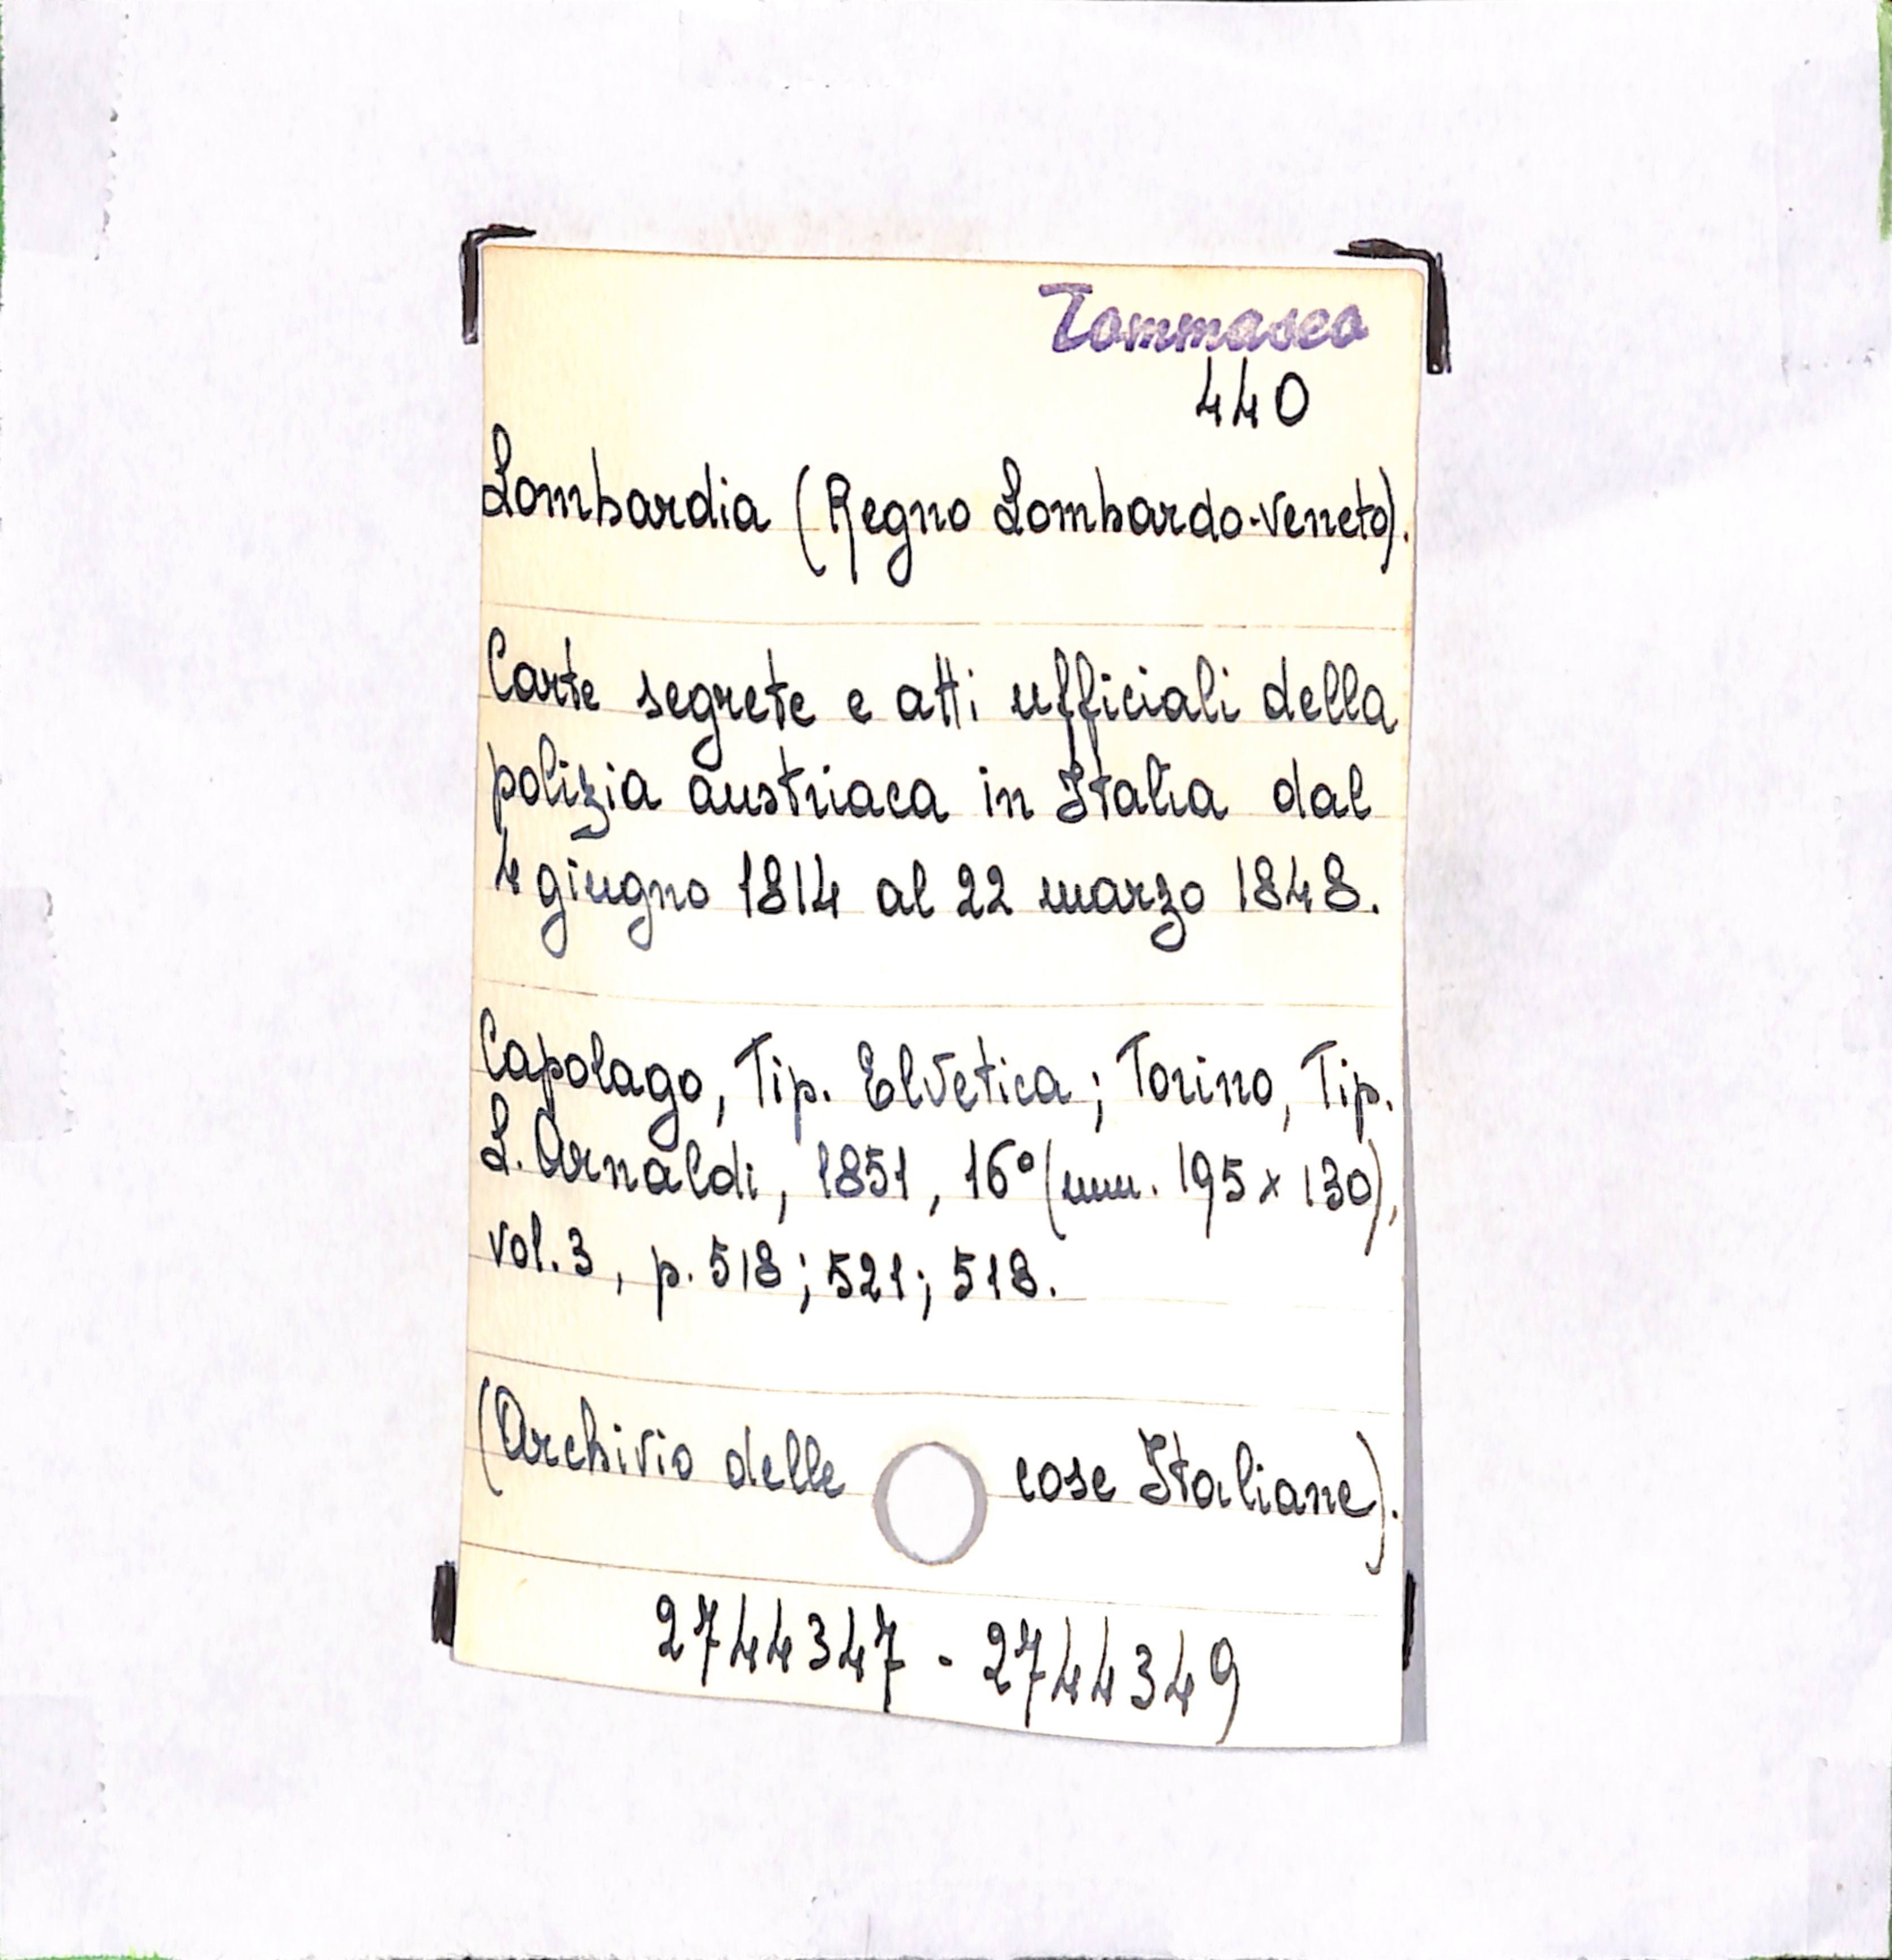 Tommaseo
440
Lombardia (Regno Lombardo-Veneto).
Carte segrete e atti ufficiali della
polizia austriaca in Italia dal
4 giugno 1814 al 22 marzo 1848.
Capolago, Tip. Elvetica; Torino, Tip.
L. Arnaldi, 1851, 16° (mm. 195 x 130),
vol. 3, p. 518; 521; 518.
(Archivio delle cose Italiane).
2744347 - 2744349